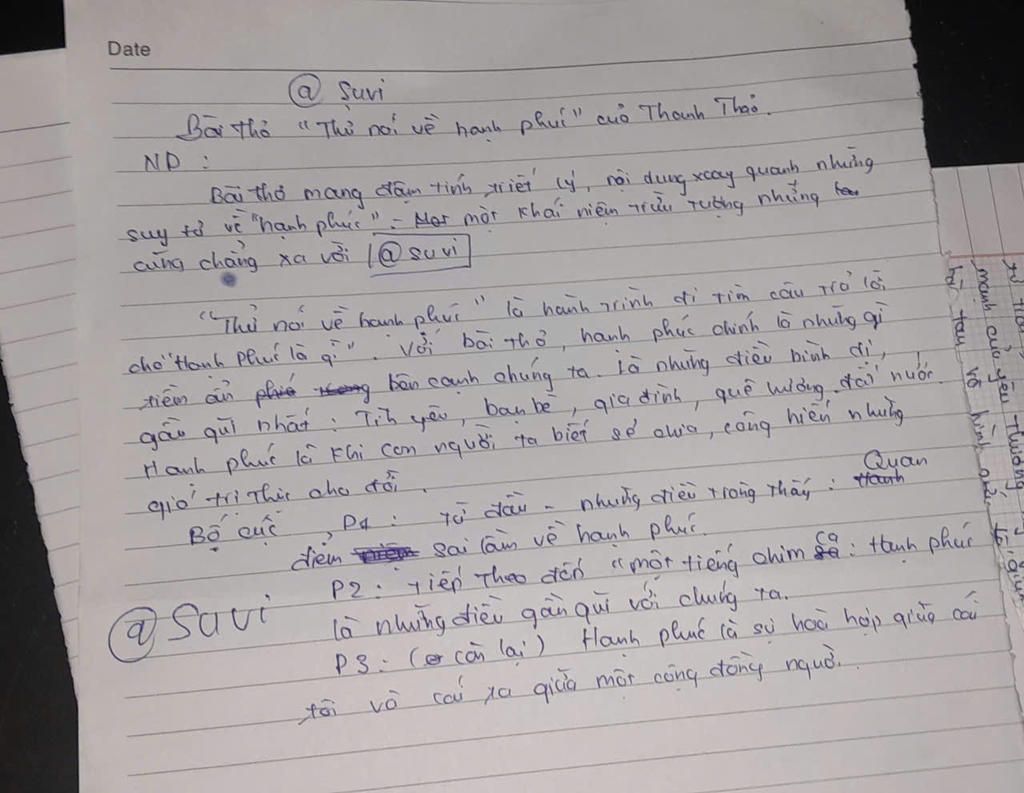 Date
@ Suvi
Bài thơ "Thử nói về hạnh phúc" của Thanh Thảo.
ND :
Bài thơ mang đậm tính triết lý, nội dung xoay quanh những
suy tư về "hạnh phúc" - một khái niệm trừu tượng nhưng
cũng chẳng xa vời @ suvi
"Thử nói về hạnh phúc" là hành trình đi tìm câu trả lời
cho "Hạnh phúc là gì". Với bài thơ, hạnh phúc chính là những gì
tiềm ẩn bên cạnh chúng ta. Là những điều bình dị,
gần gũi nhất : Tình yêu, bạn bè, gia đình, quê hương, đất nước.
Hạnh phúc là khi con người ta biết sẻ chia, cống hiến những
giá trị thực cho đời.
Bố cục , P1 : Từ đầu - những điều trông thấy : Quan
điểm sai lầm về hạnh phúc.
P2 : Tiếp theo đến "một tiếng chim ca : Hạnh phúc
@ Suvi
là những điều gần gũi với chúng ta.
P3 : (còn lại) Hạnh phúc là sự hoà hợp giữa cái
tôi và cái ta giữa một cộng đồng người.